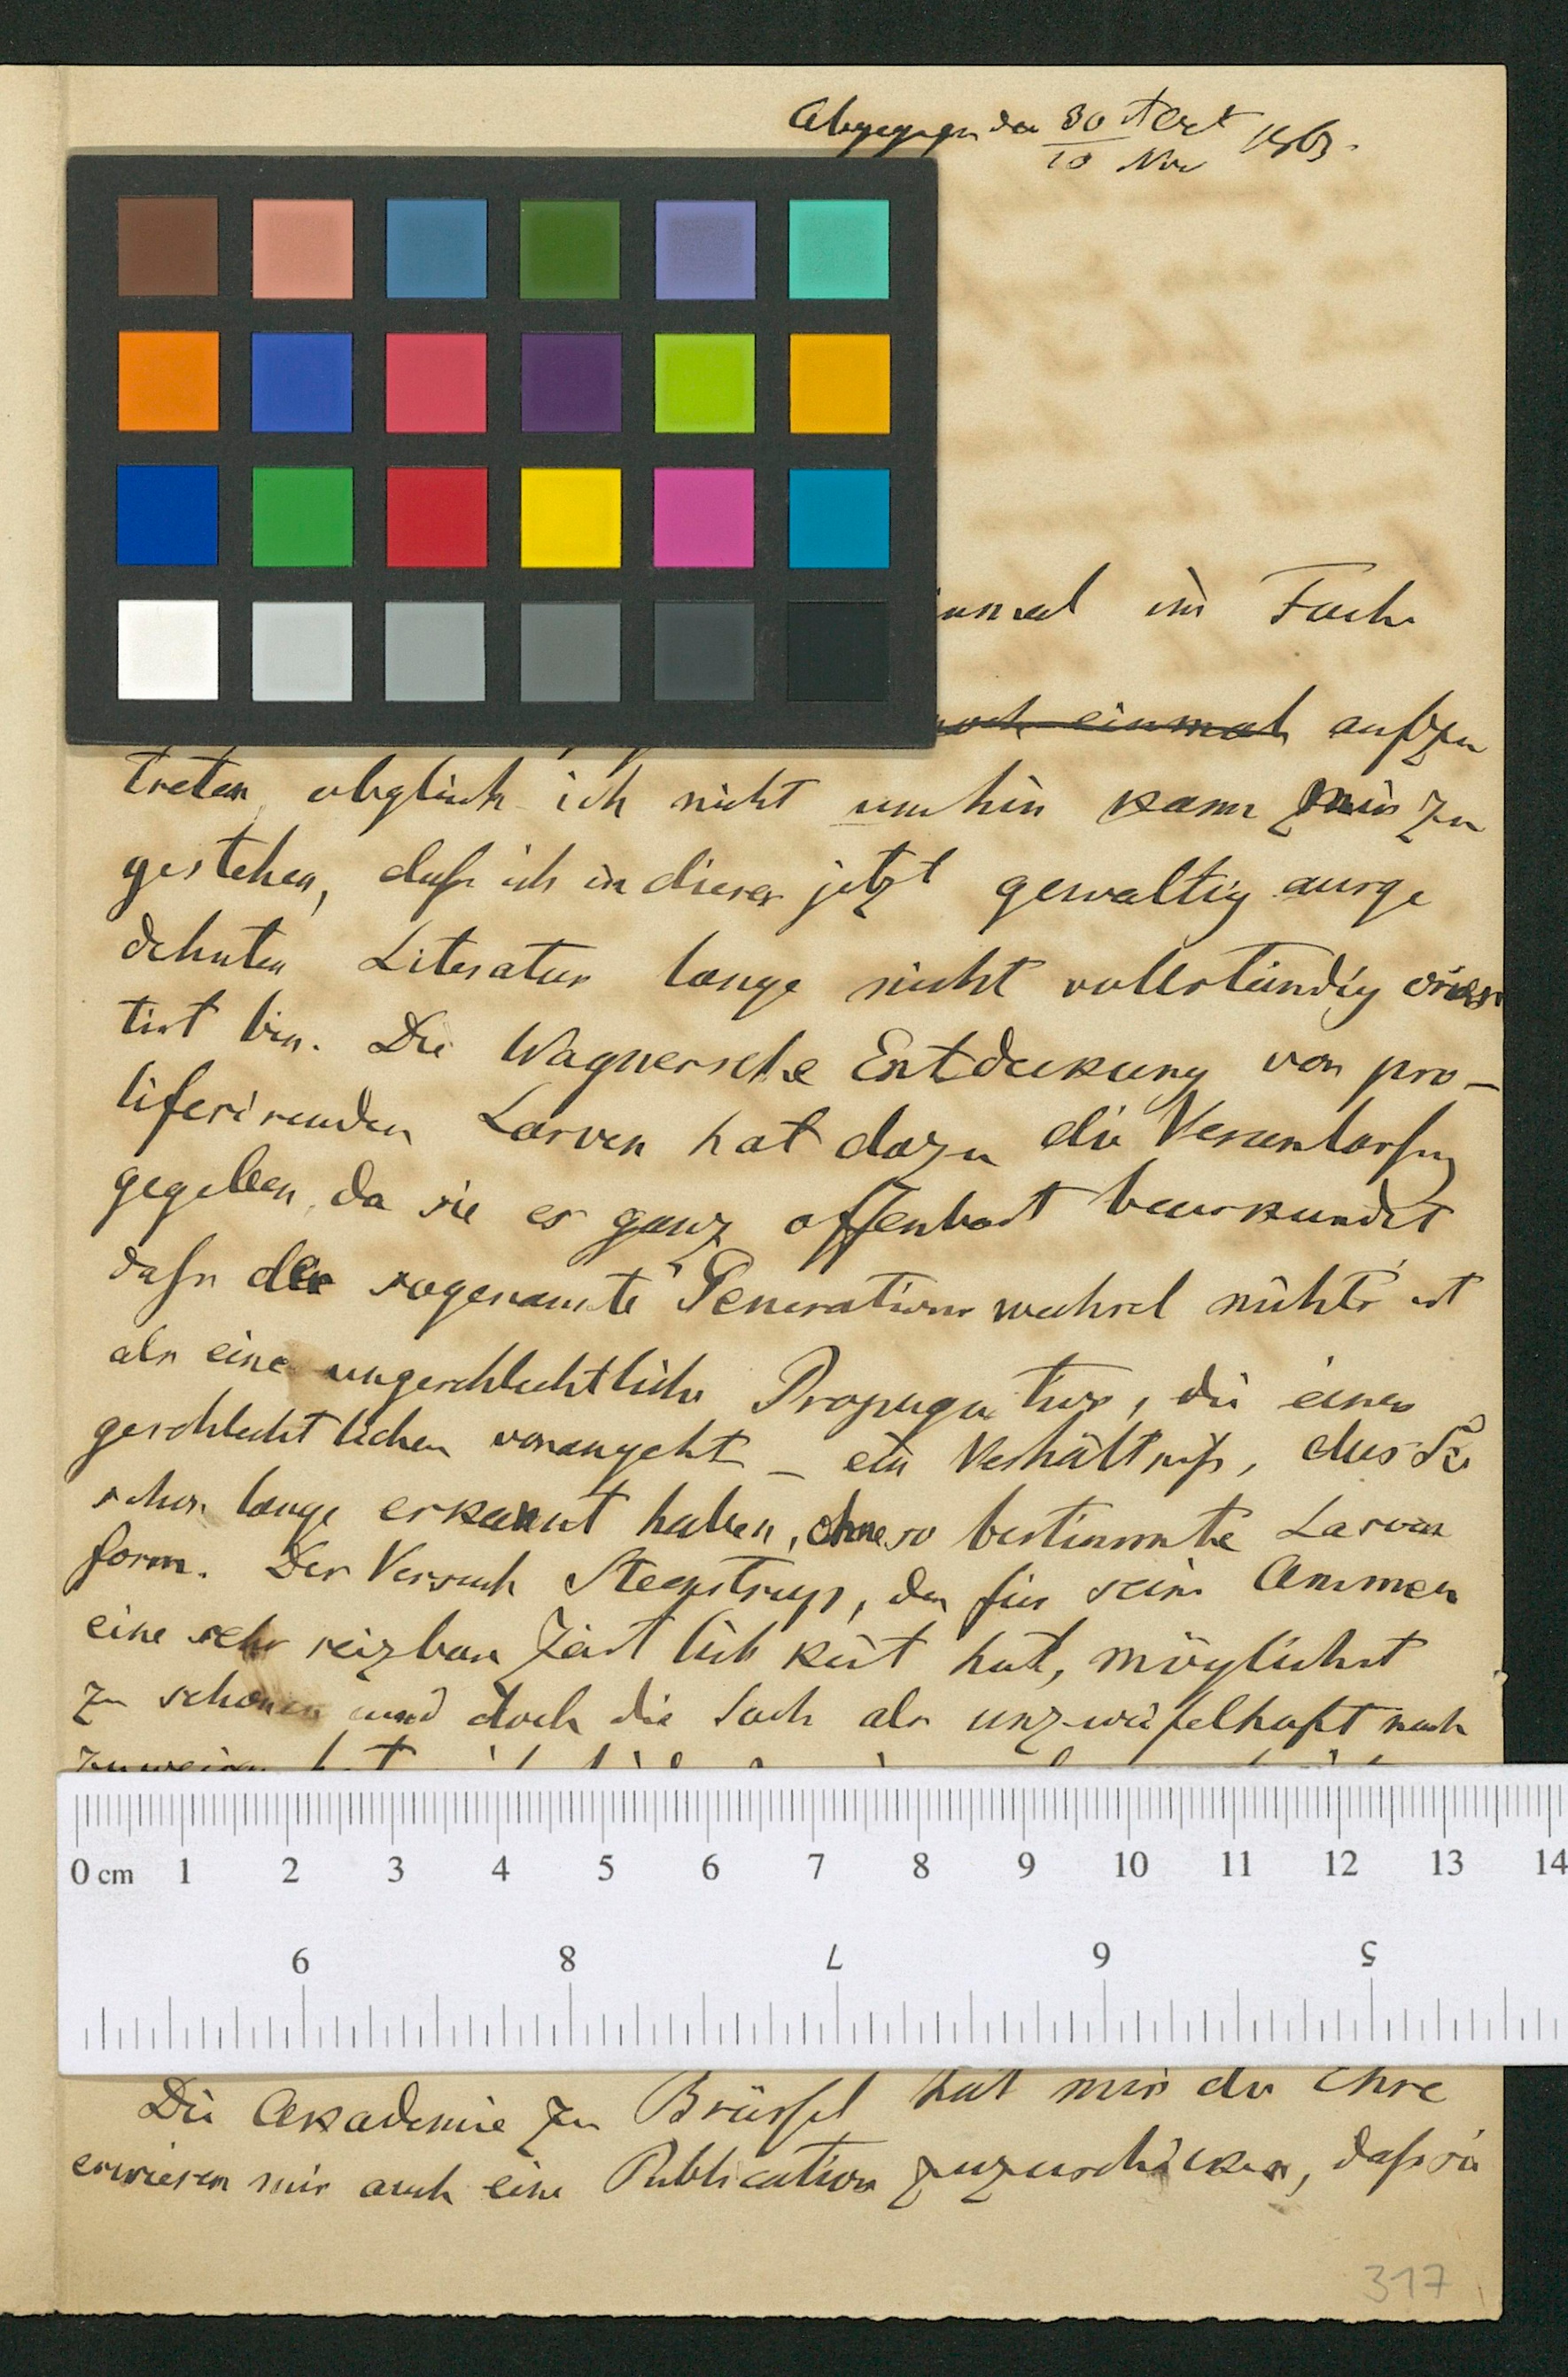 Abgegangen den 30 Oct 1863.
10 Nov
im Fache
noch einmal aufzu
treten, obgleich ich nicht umhin kann mir zu
gestehen, daſs ich in dieser jetzt gewaltig ausge
dehnten Literatur lange nicht vollständig orien
tirt bin. Die Wagnersche Entdeckung von pro-
liferirenden Larven hat dazu die Veranlassung
gegeben, da sie es ganz offenbart beurkundet
daſs der sogenannte Generationswechsel nichts ist
als eine ungeschlechtliche Propagation, die einer
geschlechtlichen vorangeht – ein Verhältniſs, das Sie
schon lange erkannt haben, ohne so bestimmte Larven
form. Der Versuch Steenstrup, der für seine Ammen
eine sehr reizbare Zärtlichkeit hat, möglichst
zu schonen und doch die Sache als unzweifelhaft nach
zuweisen
0 cm 1 2 3 4 5 6 7 8 9 10 11 12 13 14
9 8 7 6 5
Die Akademie zu Brüssel hat mir die Ehre
erwiesen mir auch eine Publication zuzuschicken, daſs sie
317